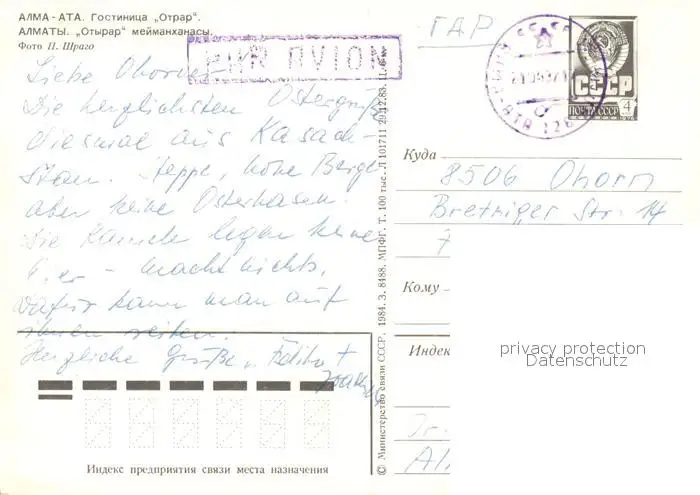 АЛМА-АТА. Гостиница „Отрар".
АЛМАТЫ. „Отырар" мейманханасы.
Фото П. Шраго
PAR AVION
ГДР
СССР
ПОЧТА СССР
4
1976
Liebe Ohorner
Die herzlichsten Ostergrüße
diesmal aus Kasach-
stan. Steppe, hohe Berge
aber keine Osterhasen.
Die Kamele legen keine
Eier – macht nichts,
dafür kann man auf
ihnen reiten.
Herzliche Grüße, Edith +
Куда
8506 Ohorn
Bretniger Str. 14
7
Кому
Индек
privacy protection
Datenschutz
Al
Индекс предприятия связи места назначения
© Министерство связи СССР, 1984. З. 8488. МПФГ. Т. 100 тыс. Л 101711 29.12.83. Ц. 6 к.